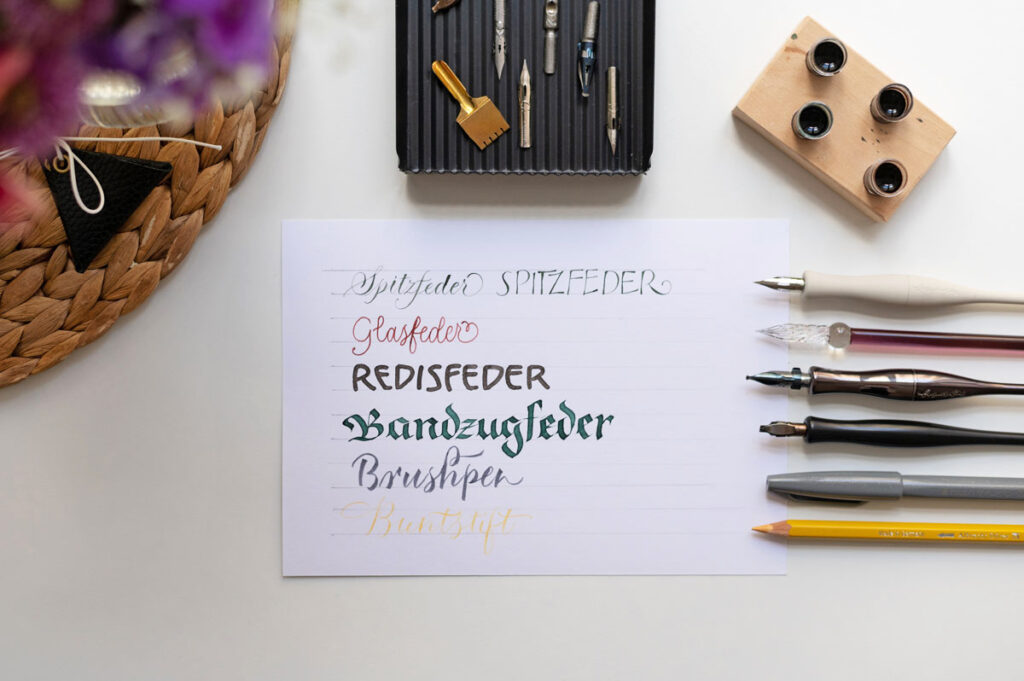 Spitzfeder SPITZFEDER
Glasfeder
REDISFEDER
Bandzugfeder
Brushpen
Buntstift